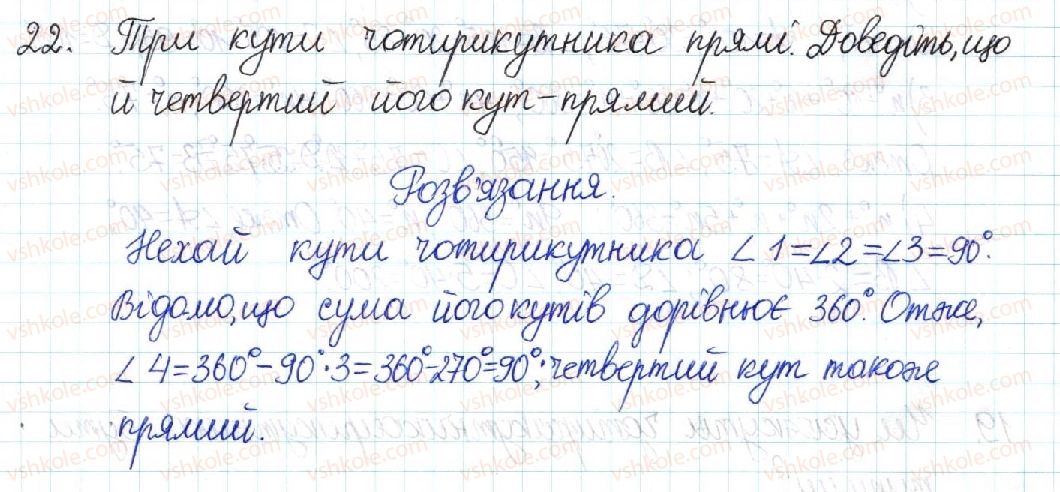 22. Три кути чотирикутника прямі. Доведіть, що
й четвертий його кут - прямий.
Розв'язання.
Нехай кути чотирикутника ∠1=∠2=∠3=90°.
Відомо, що сума його кутів дорівнює 360°. Отже,
∠4=360°-90°·3=360°-270°=90°; четвертий кут також
прямий.
vshkole.com